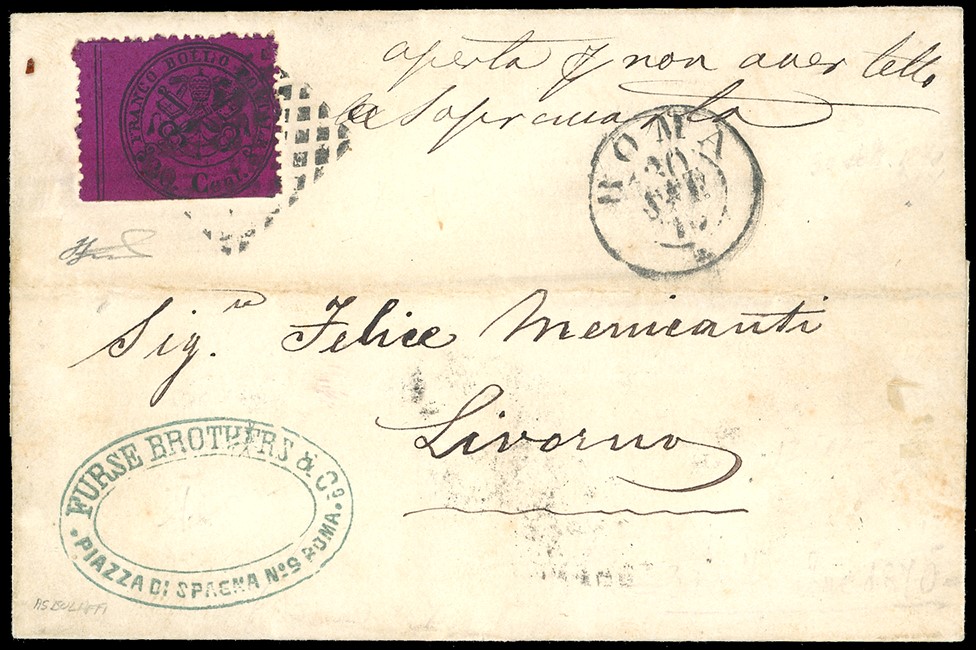 FRANCO BOLLO
Cent.
aperta p non aver letto
la Soprascritta
ROMA
20
SET
70
Sig.re Felice Menicanti
Livorno
FURSE BROTHERS & Co.
PIAZZA DI SPAGNA No. 9 ROMA.